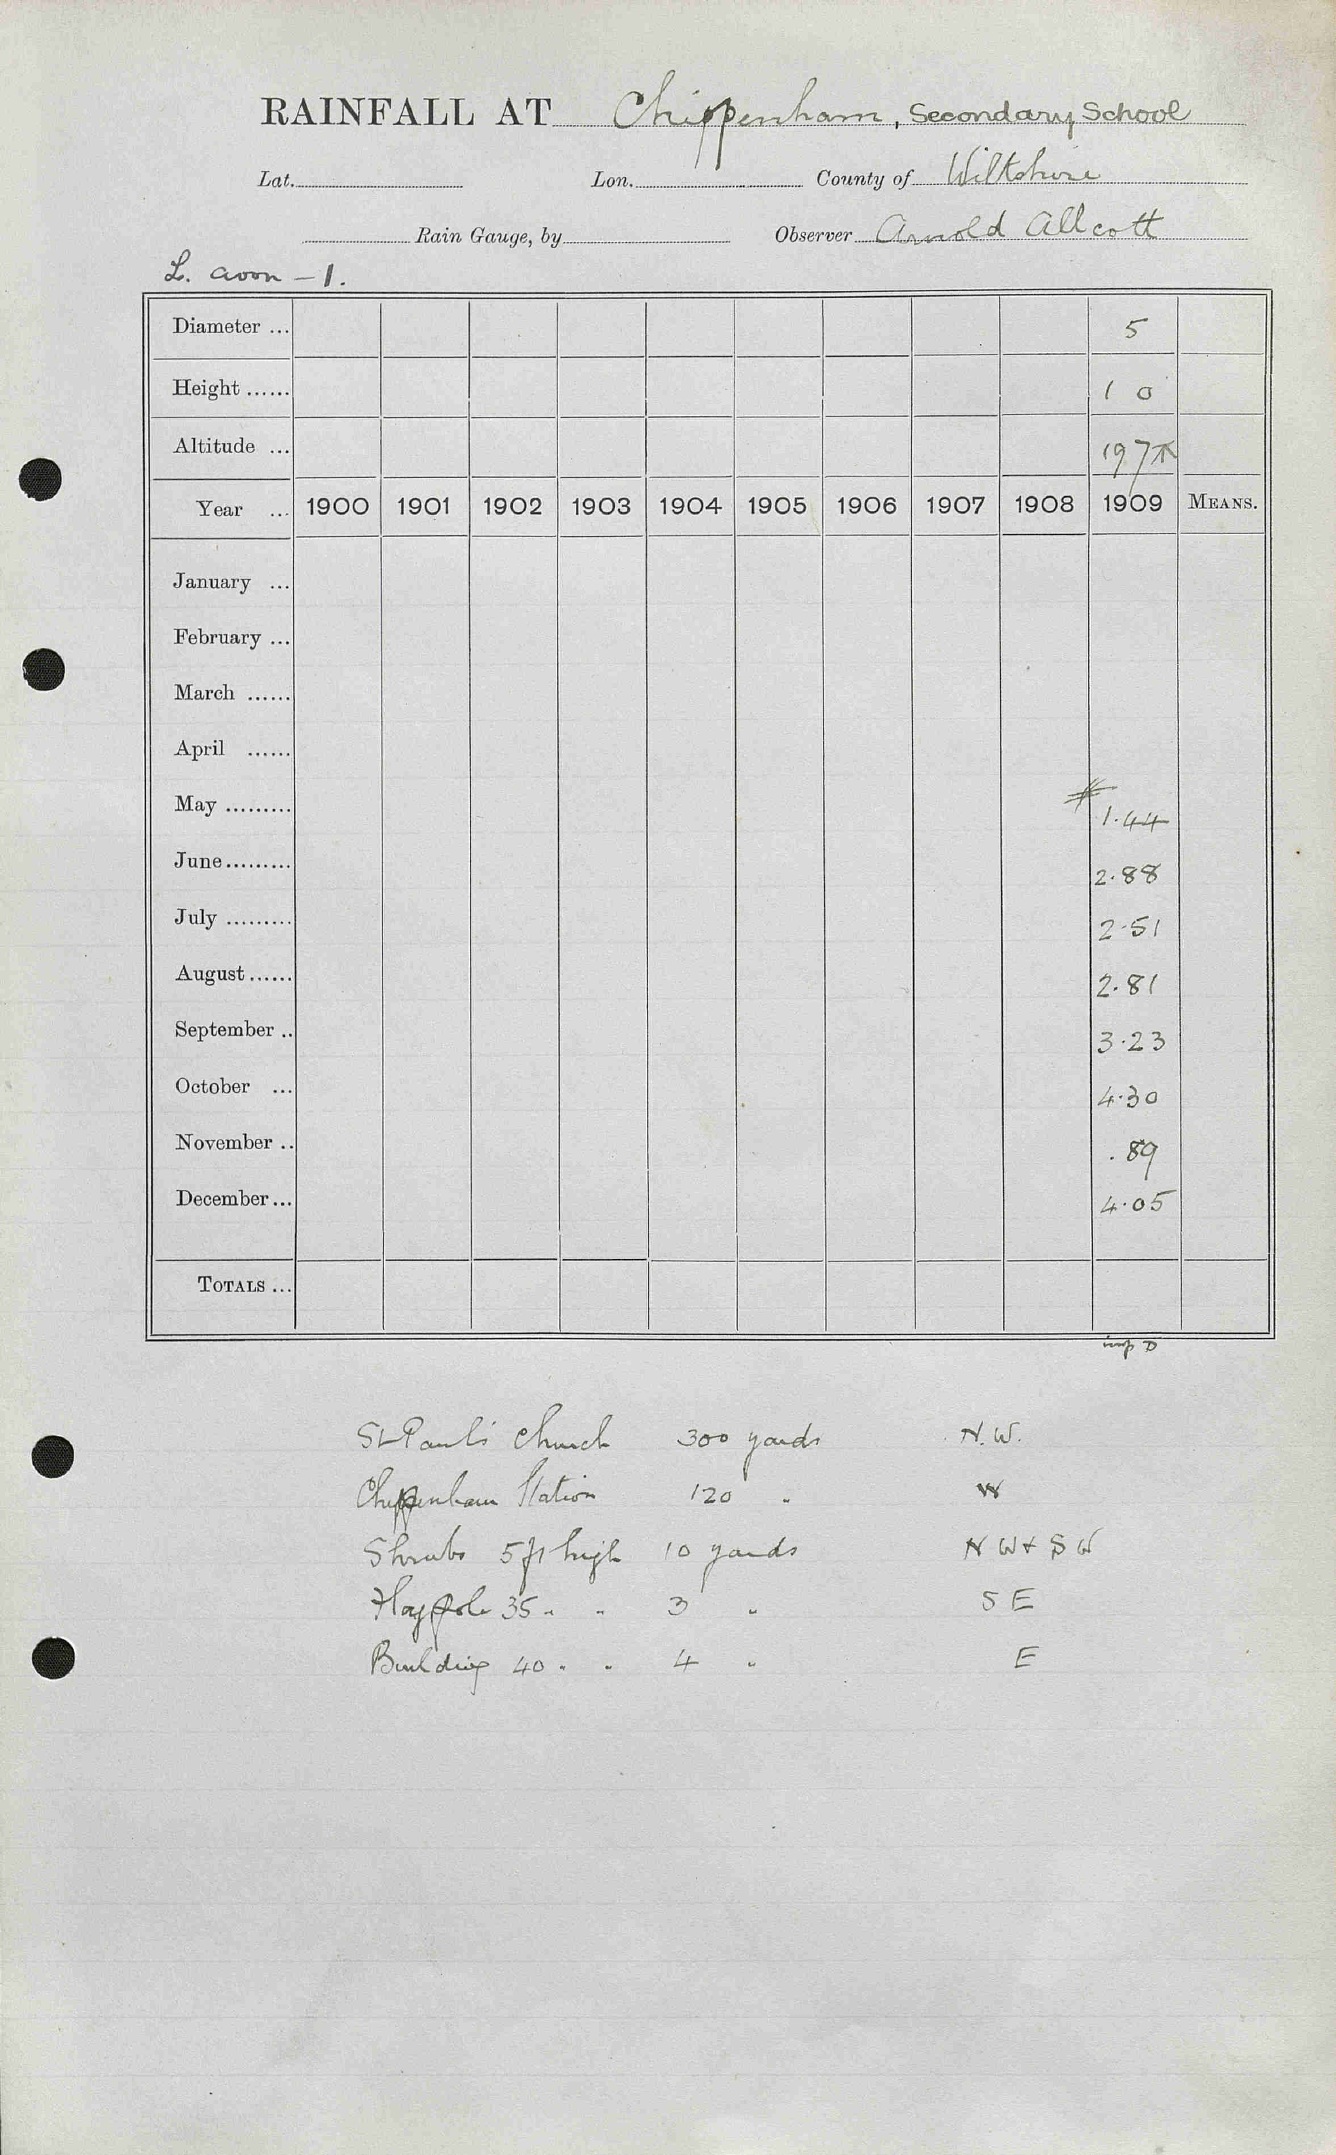 RAINFALL AT Chippenham, Secondary School
Lat. Lon. County of Wiltshire
Rain Gauge, by Observer Arnold Allcott
L. Avon – 1.
Diameter ... 5
Height ...... 1 0
Altitude ... 197
Year ... 1900 1901 1902 1903 1904 1905 1906 1907 1908 1909 MEANS.
January ...
February ...
March ......
April ......
May ......... # 1.44
June ......... 2.88
July ......... 2.51
August ...... 2.81
September .. 3.23
October ... 4.30
November .. .89
December ... 4.05
TOTALS ...
St Paul's Church 300 yards N.W.
Chippenham Station 120 " W
Shrubs 5 ft high 10 yards N W + S W
Flag pole 35 " " 3 " S E
Building 40 " " 4 " E